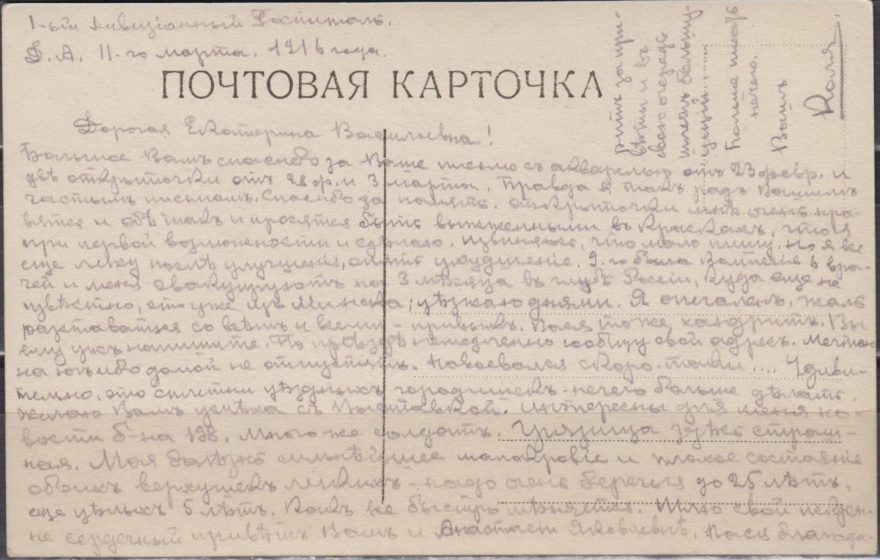 1-ый Дивизіонный Госпиталь.
Д. А. 11-го марта. 1916 года.
ПОЧТОВАЯ КАРТОЧКА
Дорогая Екатерина Васильевна!
Большое Вамъ спасибо за Ваше письмо съ акварелью отъ 23 февр. и
двѣ открыточки отъ 28 ф. и 3 марта. Правда я такъ радъ Вашимъ
частымъ письмамъ. Спасибо за память. открыточки мнѣ очень нра-
вятся и обѣ такъ и просятся быть выжженными въ краскахъ, что я
при первой возможности и сдѣлаю. Извиняюсь, что мало пишу. но я все
еще лежу послѣ улучшенія, опять ухудшеніе. 9-го была 4 вра-
чей и меня эвакуируютъ на 3 мѣсяца въ глубь Россіи, куда еще не
извѣстно, это уже изъ Минска; уѣзжаю днями. Я опечаленъ, жаль
разставаться со всѣмъ и всеми - привыкъ. Вася тоже хандритъ. Вы
ему ужъ напишите. По пріѣздѣ немедленно сообщу свой адресъ. Мечтаю
на югъ ибо домой не отпустятъ. скоро-таки.... Удиви-
тельно, это сплетни уѣздныхъ городишекъ - нечего больше дѣлать.
Желаю Вамъ успѣха съ Выставкой. Интересны для меня но-
вости б-на 198. Много же солдатъ. здѣсь страш-
ная. Моя болѣзнь сильнѣйшее малокровіе и плохое состояніе
обѣихъ верхушекъ легкихъ - надо очень беречься до 25 лѣтъ.
еще цѣлыхъ 5 лѣтъ. Какъ все быстро мѣняется. Шлю свой искрен-
не сердечный привѣтъ Вамъ и Анастасіи Яковлевнѣ. Вася благода-
ритъ за при-
вѣтъ и въ
свою очередь
шлетъ
Больше писать
нечего.
Вашъ
Коля